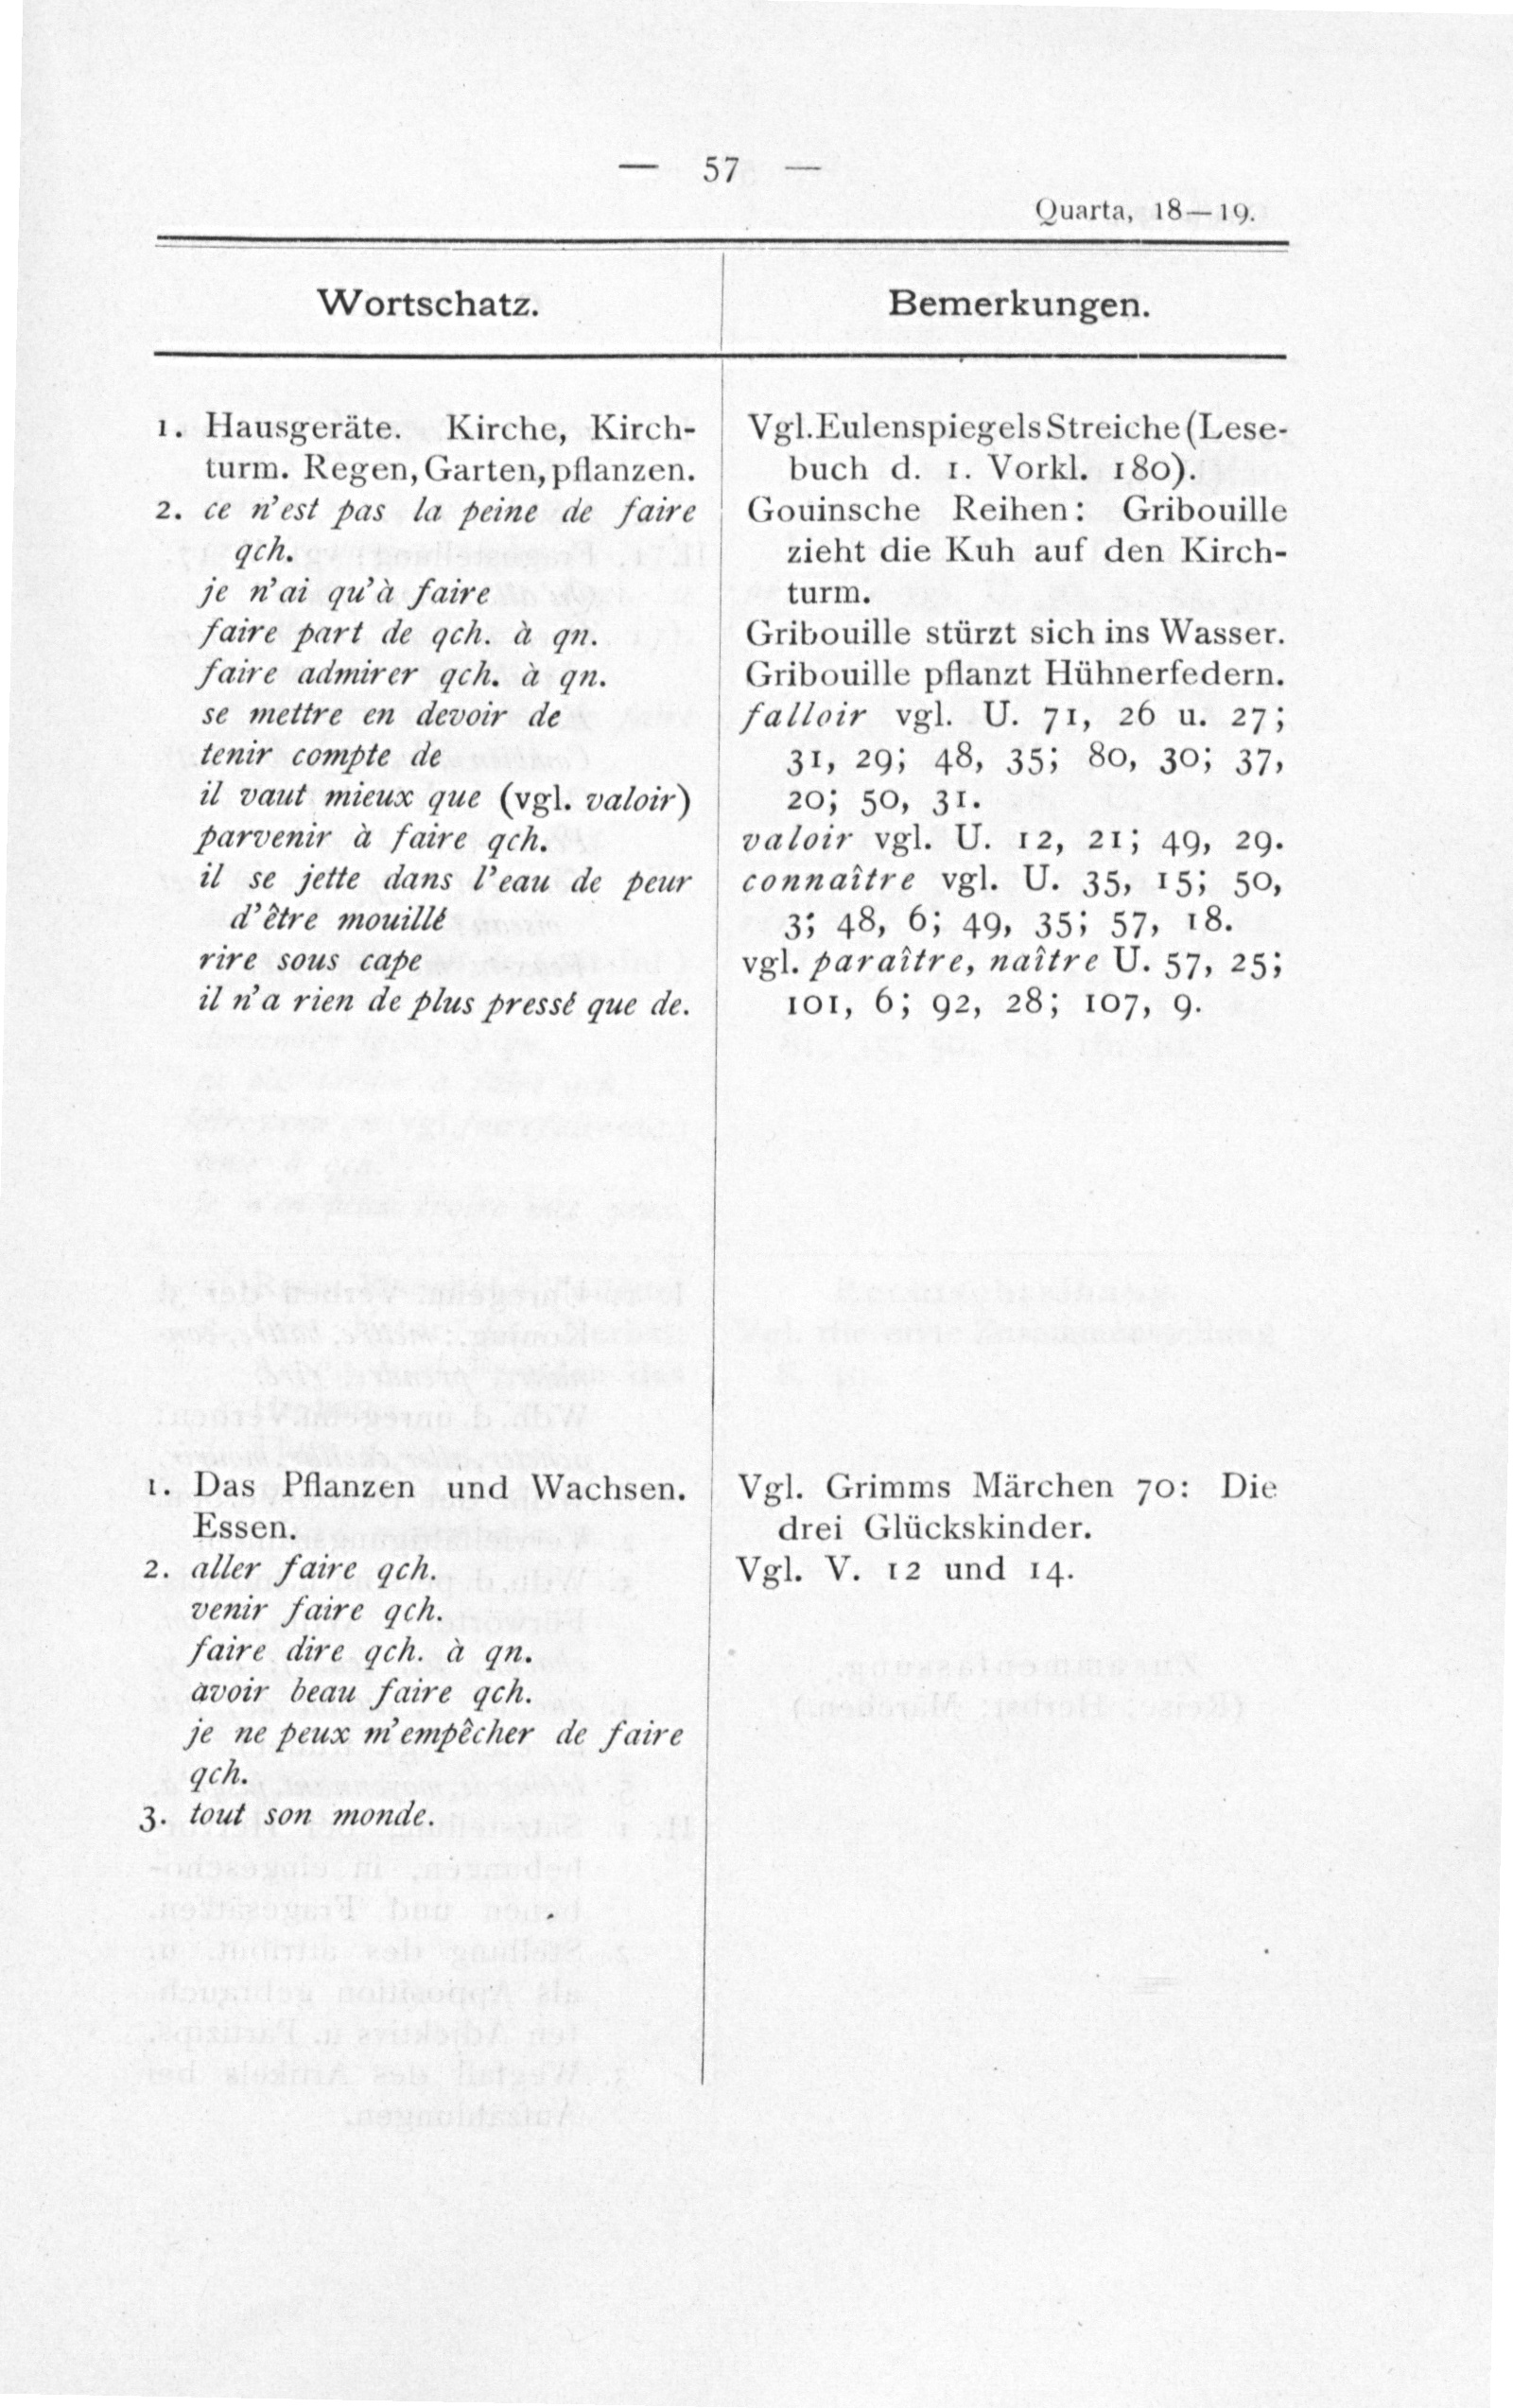 — 57 —
Quarta, 18—19.
Wortschatz.
1. Hausgeräte. Kirche, Kirch-
turm. Regen, Garten, pflanzen.
2. ce n'est pas la peine de faire
qch.
je n'ai qu'à faire
faire part de qch. à qn.
faire admirer qch. à qn.
se mettre en devoir de
tenir compte de
il vaut mieux que (vgl. valoir)
parvenir à faire qch.
il se jette dans l'eau de peur
d'être mouillé
rire sous cape
il n'a rien de plus pressé que de.
1. Das Pflanzen und Wachsen.
Essen.
2. aller faire qch.
venir faire qch.
faire dire qch. à qn.
avoir beau faire qch.
je ne peux m'empêcher de faire
qch.
3. tout son monde.
Bemerkungen.
Vgl. Eulenspiegels Streiche (Lese-
buch d. 1. Vorkl. 180).
Gouinsche Reihen: Gribouille
zieht die Kuh auf den Kirch-
turm.
Gribouille stürzt sich ins Wasser.
Gribouille pflanzt Hühnerfedern.
falloir vgl. U. 71, 26 u. 27;
31, 29; 48, 35; 80, 30; 37,
20; 50, 31.
valoir vgl. U. 12, 21; 49, 29.
connaître vgl. U. 35, 15; 50,
3; 48, 6; 49, 35; 57, 18.
vgl. paraître, naître U. 57, 25;
101, 6; 92, 28; 107, 9.
Vgl. Grimms Märchen 70: Die
drei Glückskinder.
Vgl. V. 12 und 14.